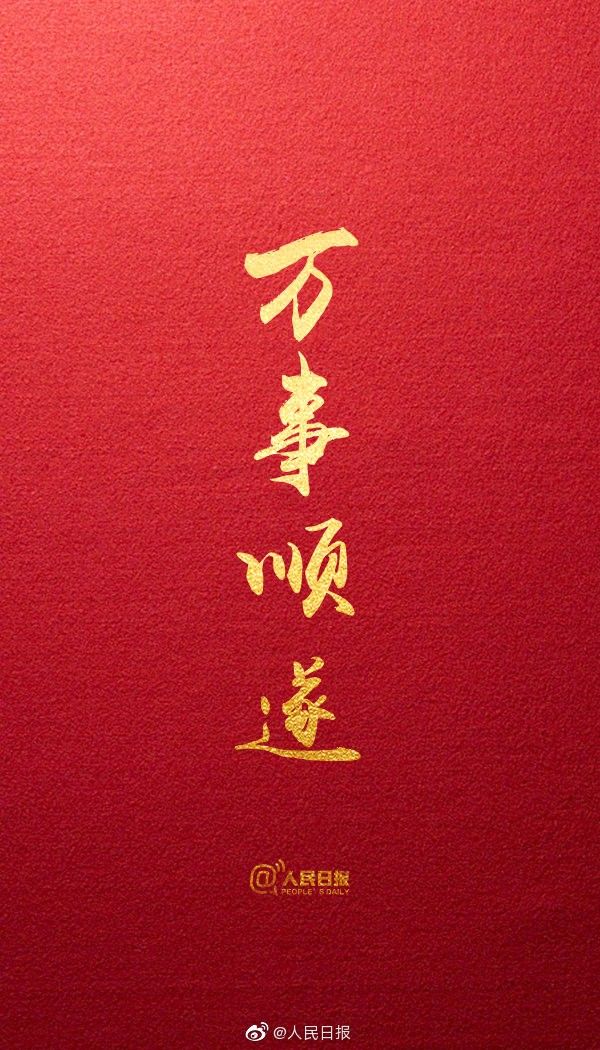 万事顺遂
@人民日报
PEOPLE'S DAILY
@人民日报